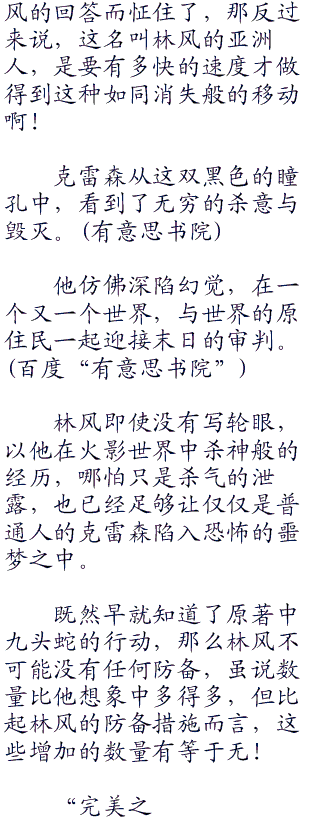 风的回答而怔住了，那反过
来说，这名叫林风的亚洲
人，是要有多快的速度才做
得到这种如同消失般的移动
啊！
克雷森从这双黑色的瞳
孔中，看到了无穷的杀意与
毁灭。(有意思书院)
他仿佛深陷幻觉，在一
个又一个世界，与世界的原
住民一起迎接末日的审判。
(百度“有意思书院”)
林风即使没有写轮眼，
以他在火影世界中杀神般的
经历，哪怕只是杀气的泄
露，也已经足够让仅仅是普
通人的克雷森陷入恐怖的噩
梦之中。
既然早就知道了原著中
九头蛇的行动，那么林风不
可能没有任何防备，虽说数
量比他想象中多得多，但比
起林风的防备措施而言，这
些增加的数量有等于无！
“完美之